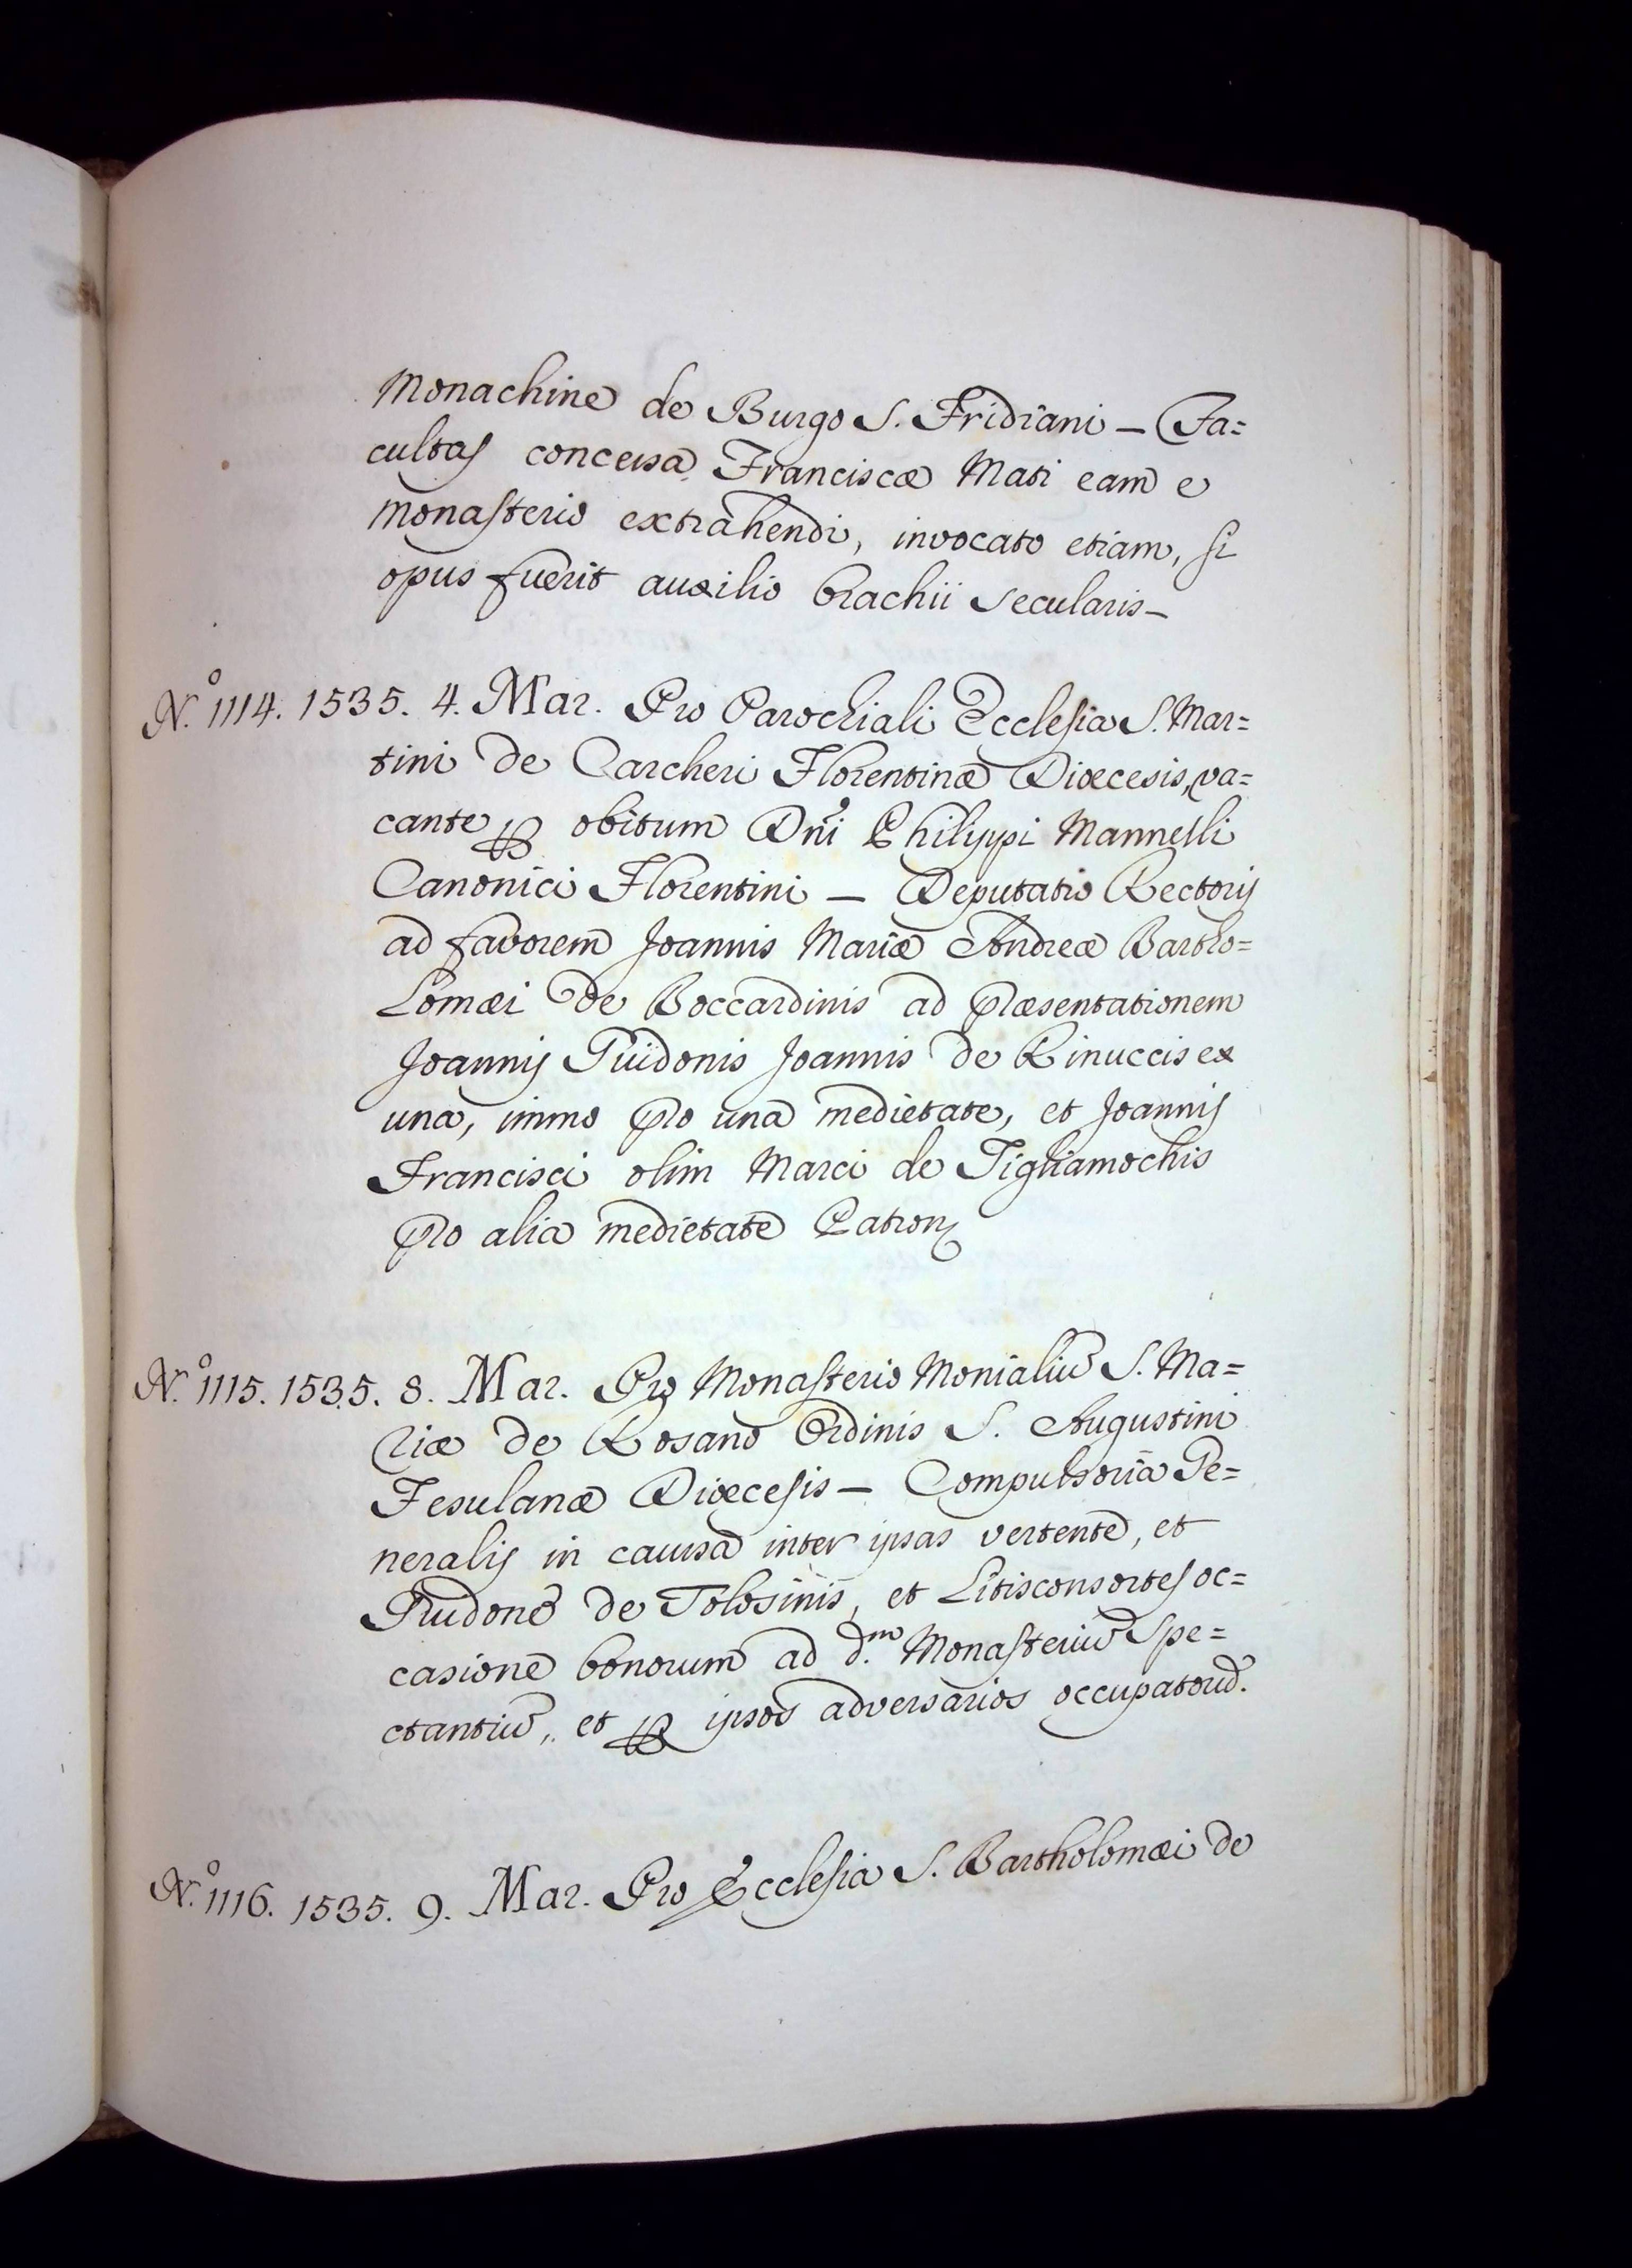 Monachine de Burgo S. Fridiani – Fa=
cultas concessa Franciscæ Mati eam e
monasterio extrahendi, invocato etiam, si
opus fuerit auxilio brachii secularis –
N.º 1114. 1535. 4. Mar. Pro Parochiali Ecclesia S. Mar=
tini de Carcheri Florentinæ Diœcesis, va=
cante ꝑ obitum Dñi Philippi Mannelli
Canonici Florentini – Deputatio Rectoris
ad favorem Joannis Mariæ Andreæ Bartho=
lomæi de Boccardinis ad præsentationem
Joannis Guidonis Joannis de Rinuccis ex
una, immo pro una medietate, et Joannis
Francisci olim Marci de Tigliamochis
pro alia medietate Patron
N.º 1115. 1535. 8. Mar. Pro Monasterio Monialiū S. Ma=
riæ de Rosano Ordinis S. Augustini
Fesulanæ Diœcesis – Compulsoria Ge=
neralis in causa inter ipsas vertente, et
Guidonē de Tolosinis, et Litisconsortes oc=
casione bonorum ad d.m Monasteriū Spe=
ctantiū, et ꝑ ipsos adversarios occupatorū.
N.º 1116. 1535. 9. Mar. Pro Ecclesia S. Bartholomæi de